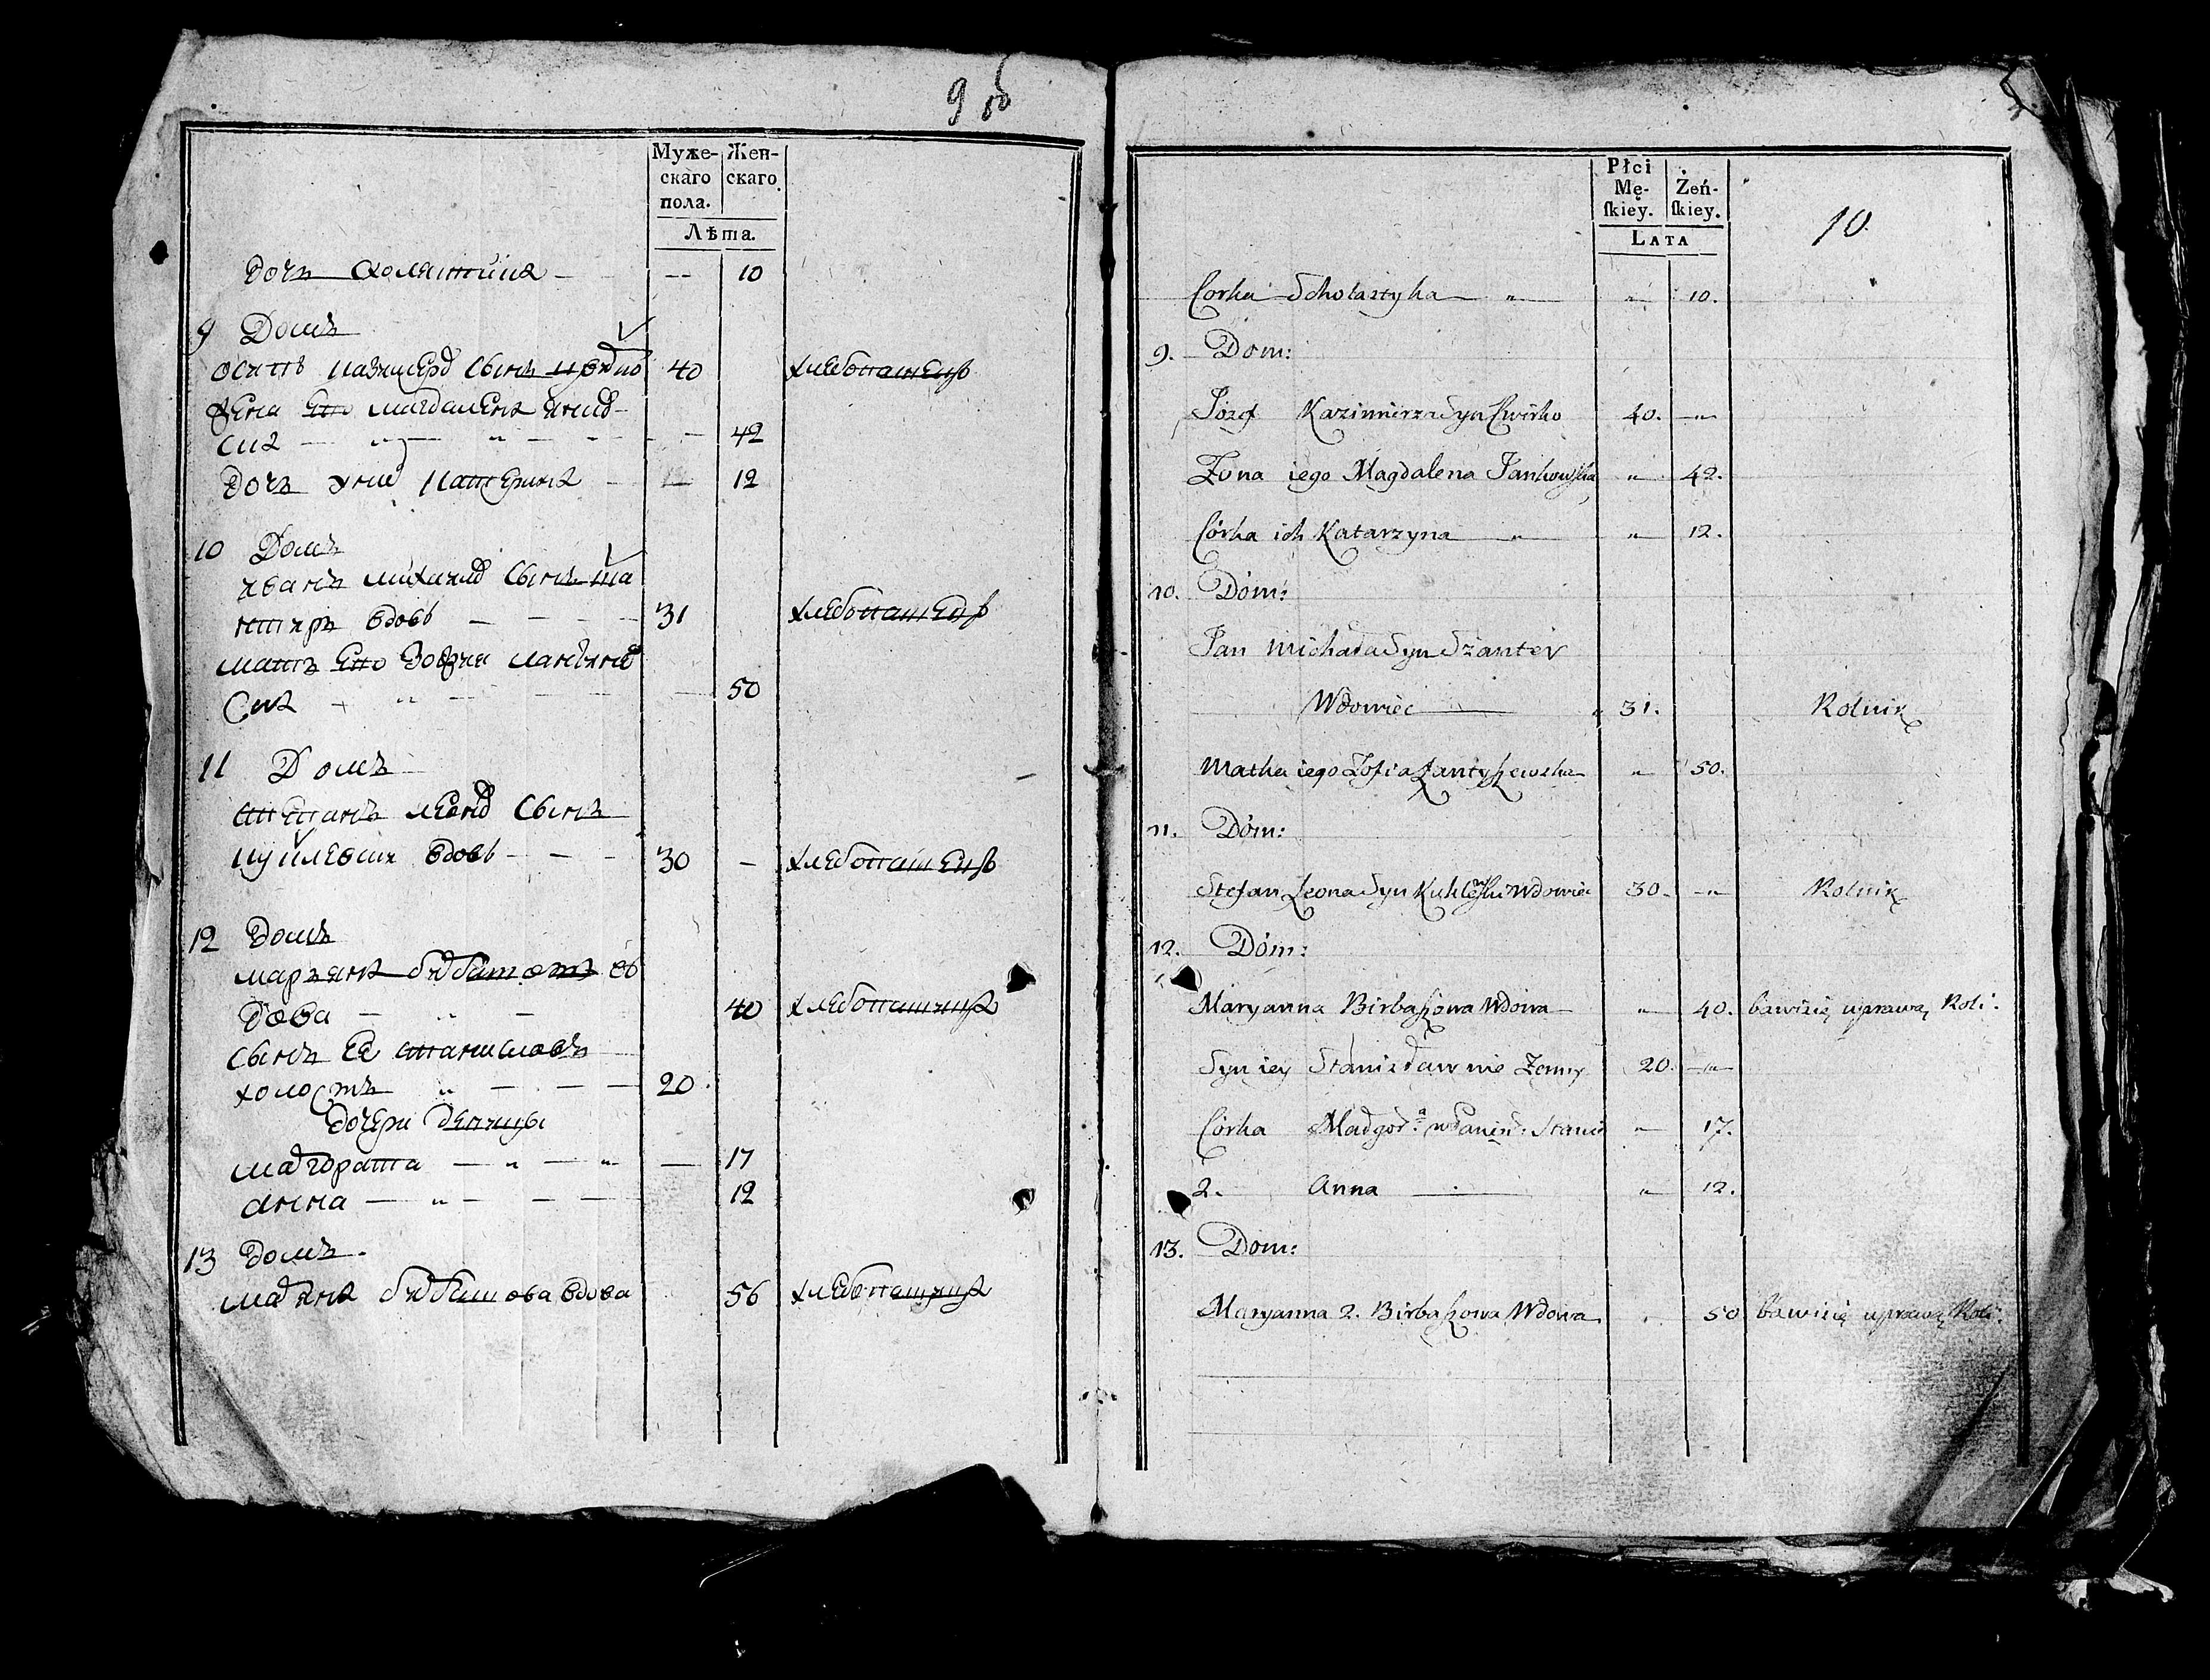 9 об
Муже-
скаго
пола.
Жен-
скаго.
Лѣта.
дочъ Схоластика — — 10
9 Домъ
осипъ казимера сынъ 40 хлебопашецъ
жена его магдалена янков-
ска — — — 42
дочъ ихъ катерина — 12
10 Домъ
иванъ михаила сынъ ша
нтиръ вдовъ — — 31 хлебопашецъ
мать его Зофия
ска — — — 50
11 Домъ
Степанъ леона сынъ
куклевски вдовъ — — 30 — хлебопашецъ
12 домъ
маръяна вѣ
дова — — 40 хлебопашица
сынъ Ее станиславъ
холостъ — — 20
дочери девицы
малгората — — — 17
анна — — — 12
13 домъ
маряна бирбашова вдова 56 хлебопашица
Płci
Mę-
ſkiey.
Żeń-
ſkiey.
LATA
10.
Corka Scholastyka — „ 10.
9. Dom:
Józef Kazimierza Syn Cwirko 40. —„
Żona iego Magdalena Jankowſka „ 42.
Córka ich Katarzyna — „ 12.
10. Dóm:
Jan Michała Syn Szanter
Wdowiec — 31. Rolnik
Matka iego Zofia Łantyſzewska „ 50.
11. Dóm:
Stefan Leona Syn Kuklewſki Wdowiec 30. —„ Rolnik
12. Dóm:
Maryanna Birbaſzowa Wdowa — „ 40. bawi się uprawą Roli.
Syn iey Stanisław nie Żonny 20. —„
Córka Małgorᵗᵃ w Panieńs: Stanie „ 17.
2. Anna — „ 12.
13. Dom:
Maryanna 2. Birbaſzowa Wdowa. „ 50 bawi się uprawą Roli.